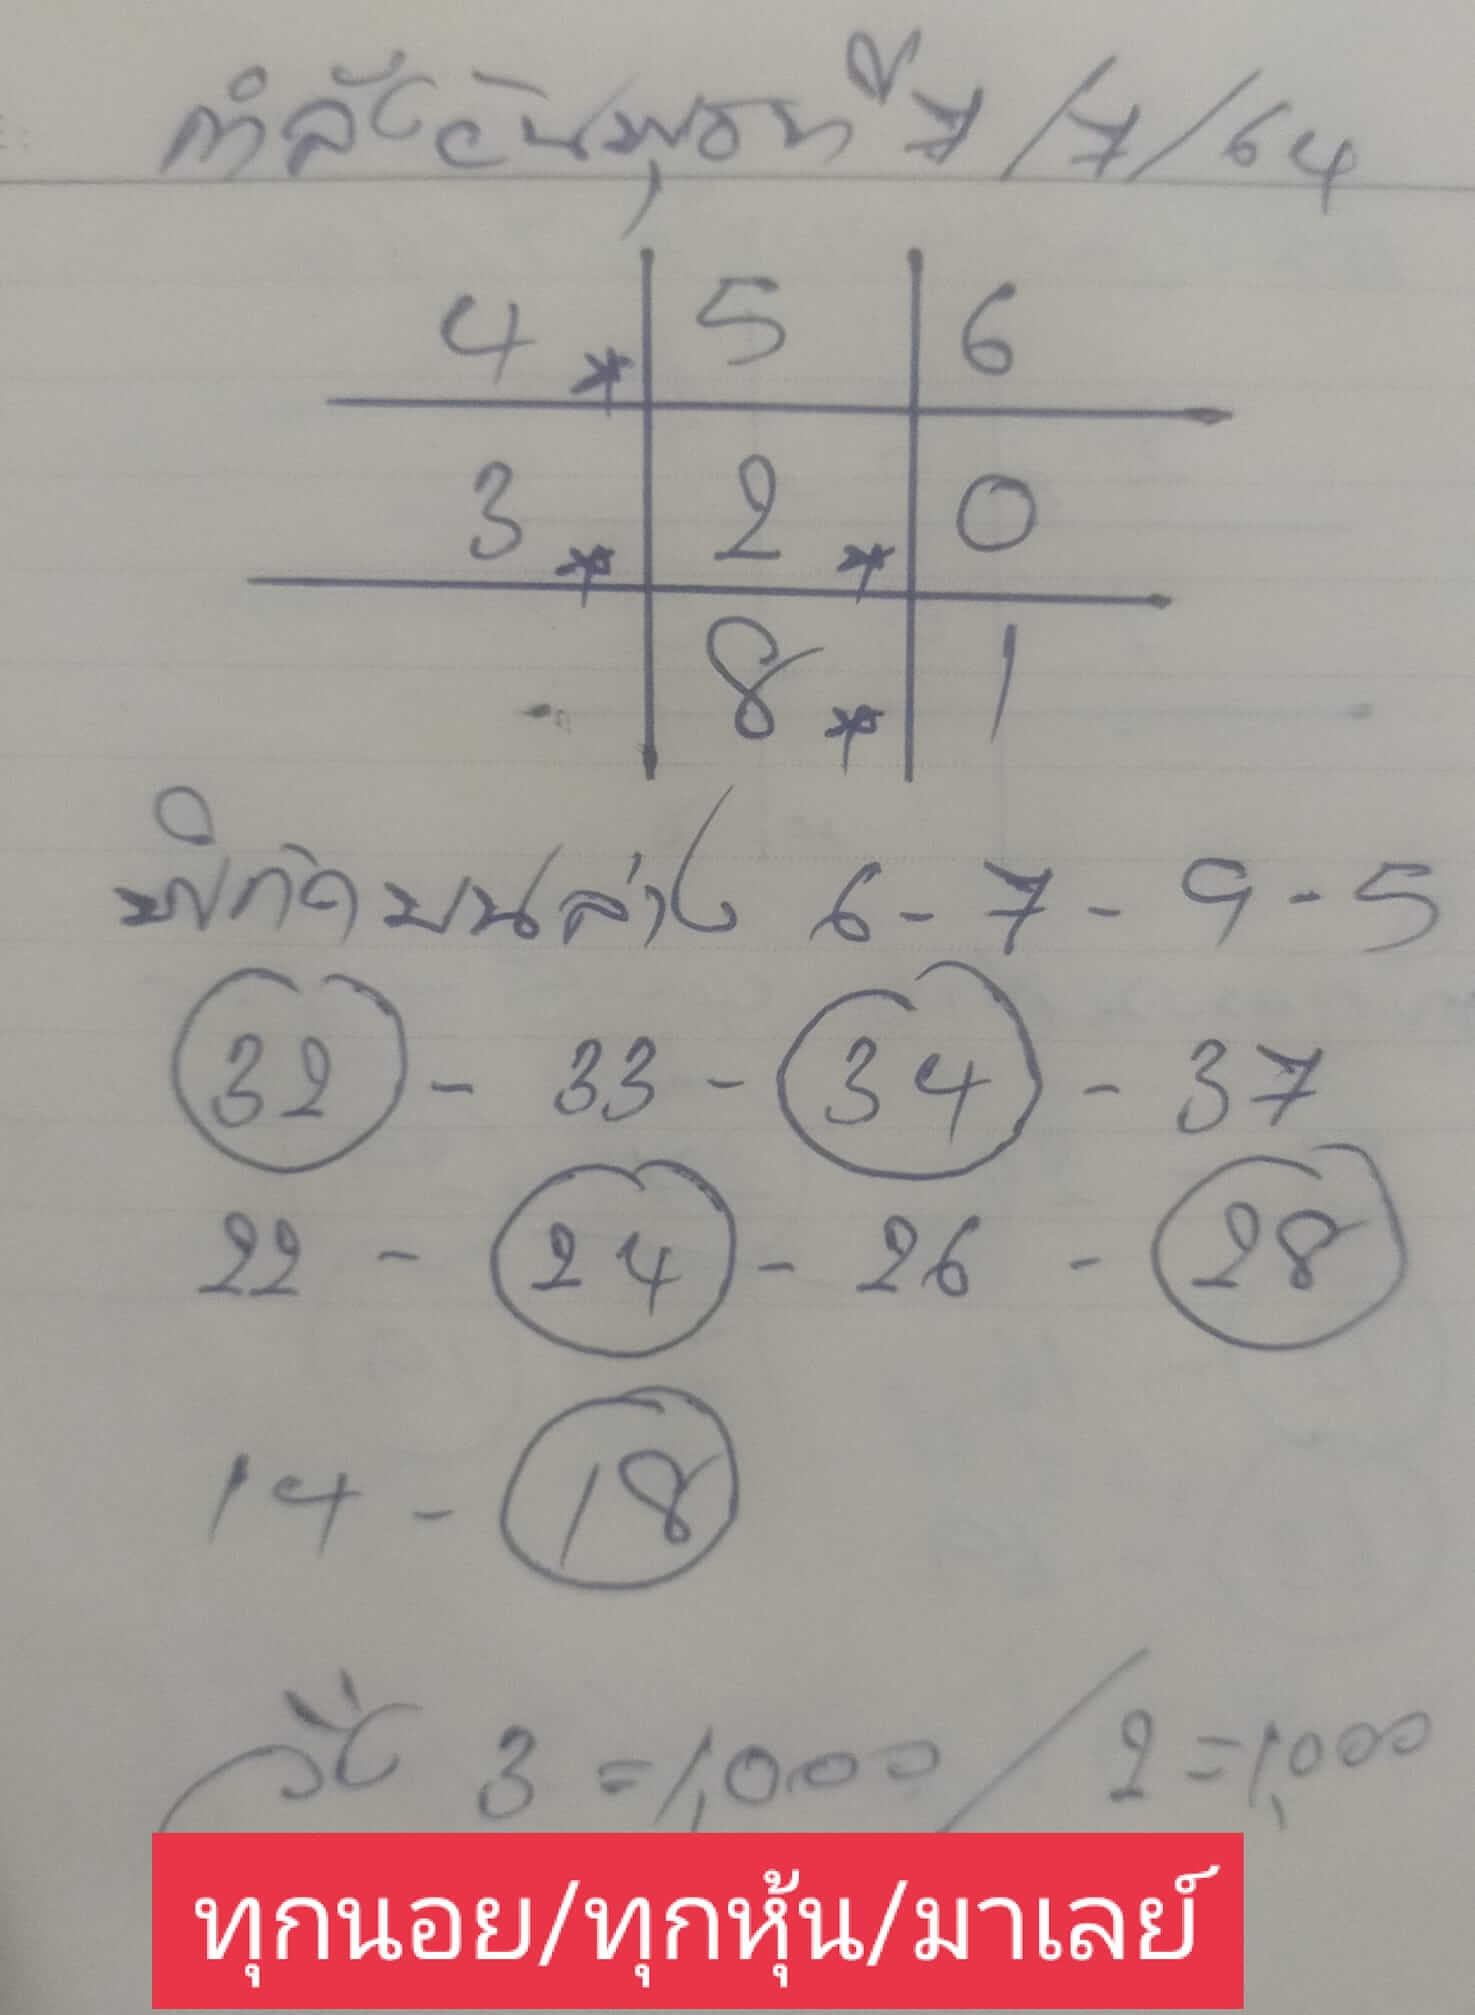 กำลังวันพุธที่ 7/7/64
4 * 5 6
3 * 2 * 0
8 * 1
พิกัดบนล่าง 6-7-9-5
32 - 33 - 34 - 37
22 - 24 - 26 - 28
14 - 18
วิ่ง 3 =1,000 / 2 =1,000
ทุกนอย/ทุกหุ้น/มาเลย์